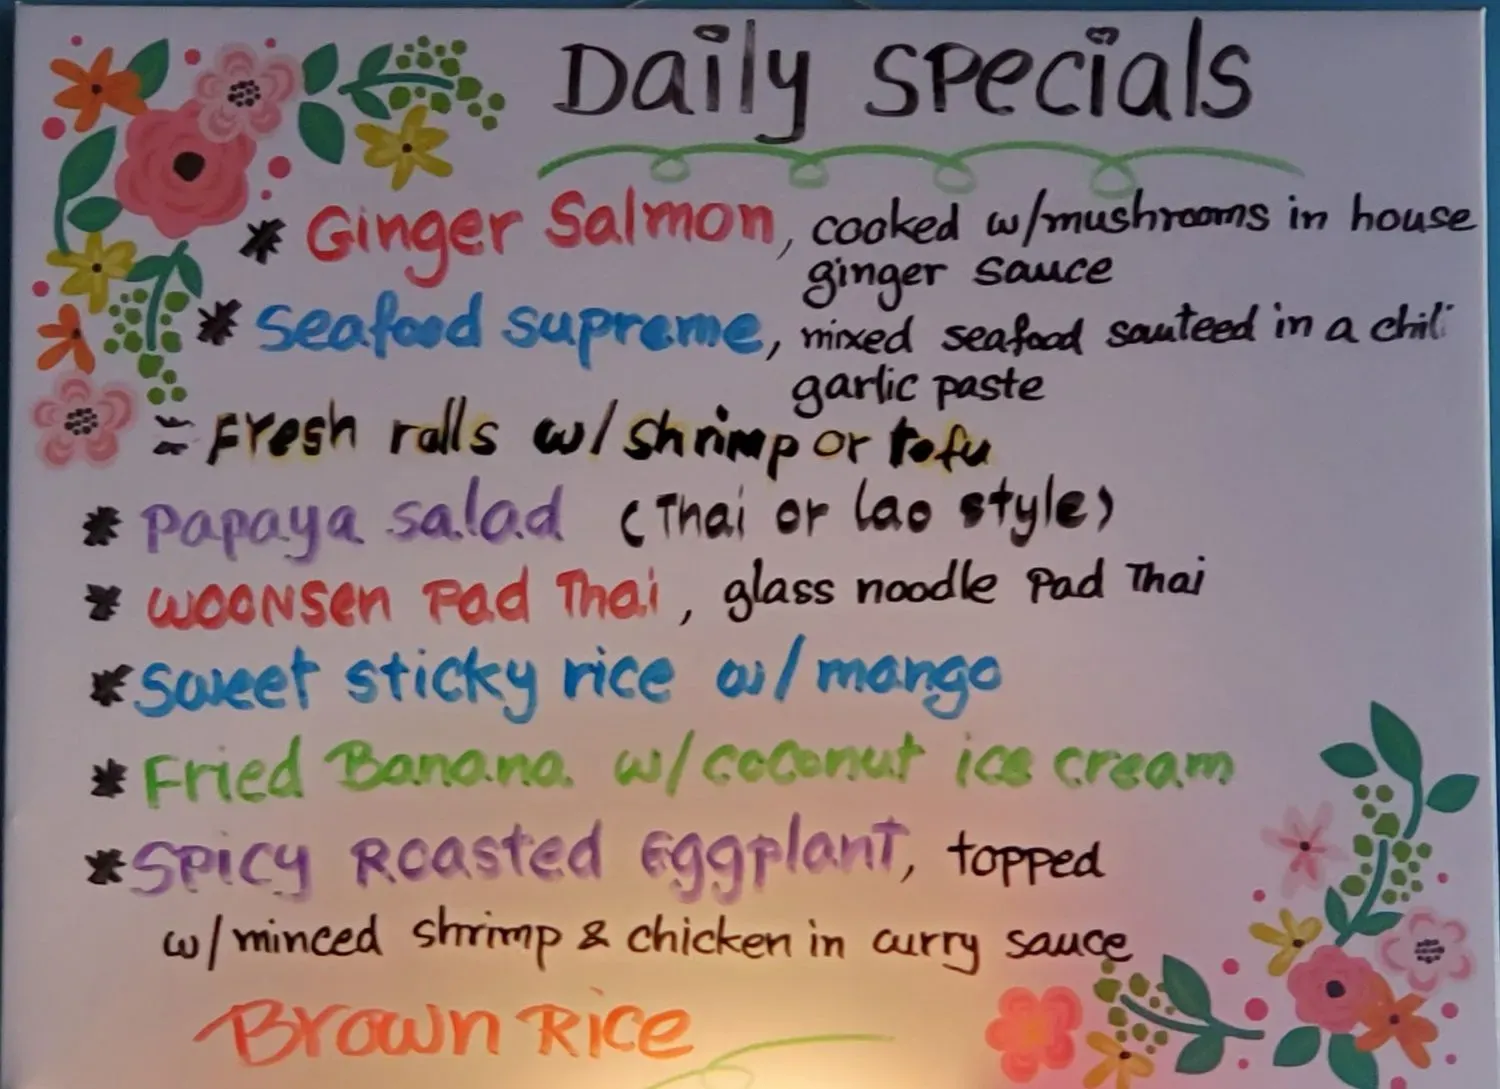 Daily Specials
* Ginger Salmon, cooked w/mushrooms in house
ginger sauce
* Seafood supreme, mixed seafood sauteed in a chili
garlic paste
= Fresh rolls w/ shrimp or tofu
* Papaya salad (Thai or Lao style)
* WOONSEN Pad Thai, glass noodle Pad Thai
* Sweet sticky rice w/ mango
* Fried Banana w/ coconut ice cream
* SPICY Roasted Eggplant, topped
w/ minced shrimp & chicken in curry sauce
Brown Rice